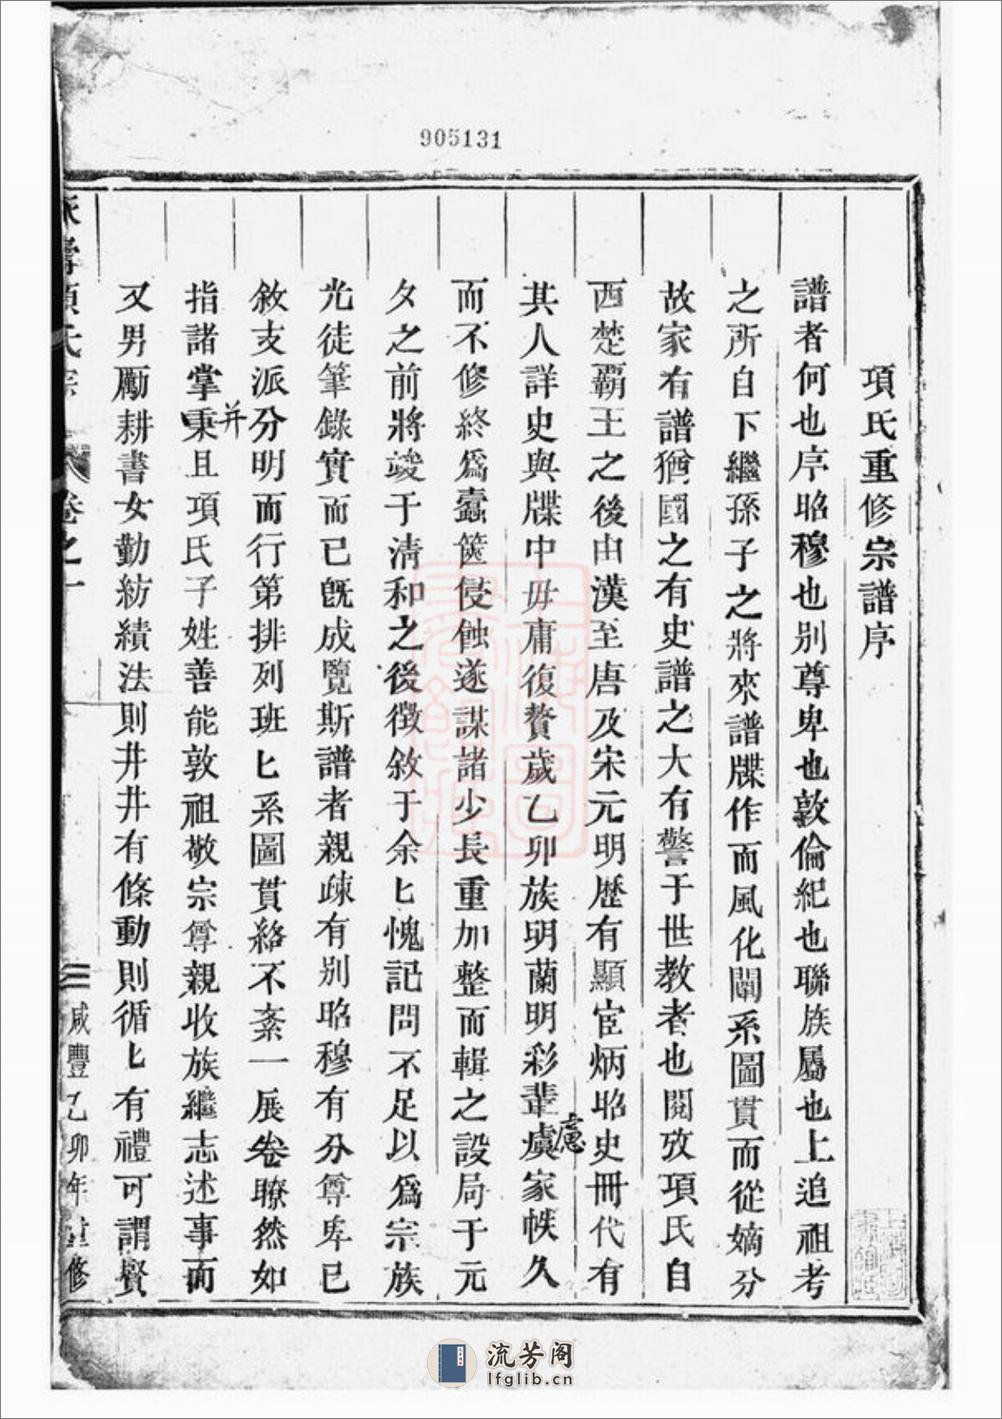 905131
項氏重修宗譜序
譜者何也序昭穆也别尊卑也敦倫紀也聯族屬也上追祖考
之所自下繼孫子之將來譜牒作而風化關系圖貫而從嫡分
故家有譜猶國之有史譜之大有警于世教者也閱攷項氏自
西楚覇王之後由漢至唐及宋元明歴有顯宦炳昭史冊代有
其人詳史與牒中毋庸復贅歲乙卯族明蘭明彩輩虞家帙久
慮
而不修終爲蠹篋侵蝕遂謀諸少長重加整而輯之設局于元
夕之前將竣于淸和之後徴敘于余匕愧記問不足以爲宗族
光徒筆錄實而已既成覽斯譜者親疎有别昭穆有分尊卑已
敘支派分明而行第排列班匕系圖貫絡不紊一展卷瞭然如
并
指諸掌秉且項氏子姓善能敦祖敬宗尊親收族繼志述事而
又男勵耕書女勤紡績法則井井有條動則循匕有禮可謂賢
項氏宗
卷之一
咸豐乙卯年重修
流芳阁
lfglib.cn